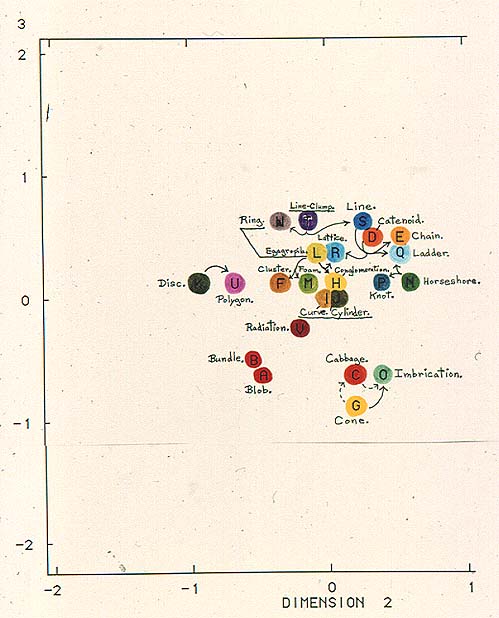 3
2
Line-Clump. Line.
Ring. N T S Catenoid.
D E Chain.
Lattice.
Eggagropila. L R Q Ladder.
Cluster. Foam. Conglomeration.
Disc. K U F M H P N Horseshore.
Polygon. Knot.
0
I J
Curve. Cylinder.
Radiation. V
Bundle. B Cabbage.
A C O Imbrication.
Blob.
G
-1 Cone.
1
-2
-2 -1 0 1
DIMENSION 2